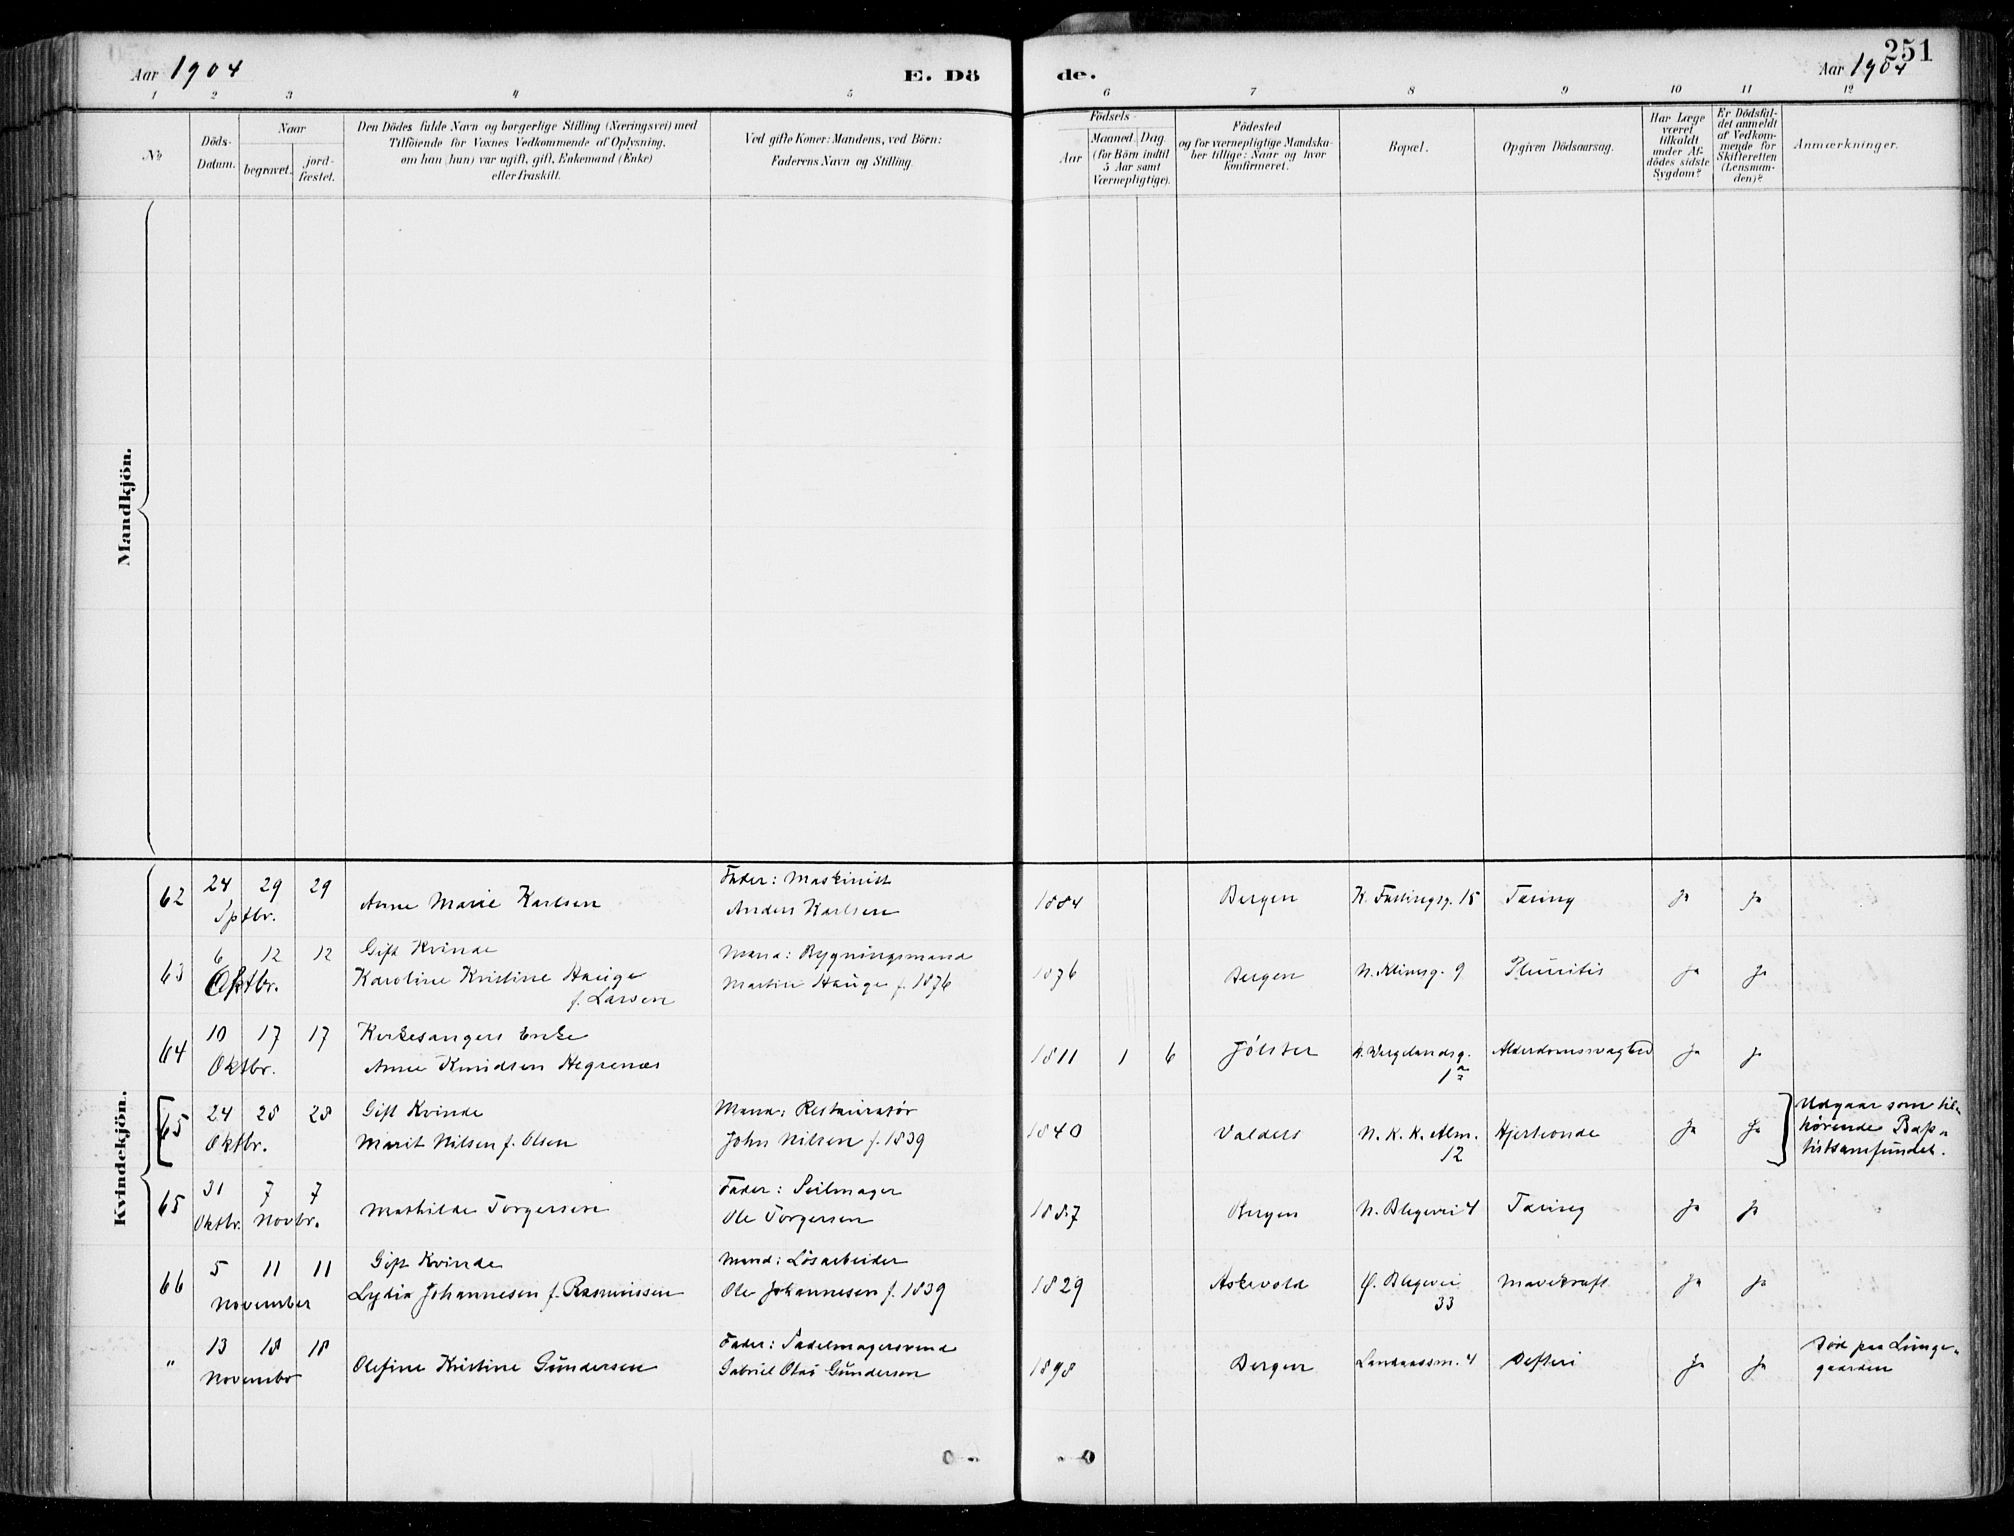 251
Aar 1904
E. Dö
de.
Aar 1904
1 2 3 4 5 6 7 8 9 10 11 12
No
Döds-
Datum.
Naar
begravet.
jord-
fæstet.
Den Dödes fulde Navn og borgerlige Stilling (Næringsvei) med
Tilföiende for Voxnes Vedkommende af Oplysning,
om han (hun) var ugift, gift, Enkemand (Enke)
eller fraskilt.
Ved gifte Koner: Mandens, ved Börn:
Faderens Navn og Stilling.
Födsels
Aar
Maaned.
Dag.
(for Börn indtil
5 Aar samt
Værnepligtige).
Födested
og for værnepligtige Mandska-
ber tillige: Naar og hvor
konfirmeret.
Bopæl.
Opgiven Dödsaarsag.
Har Læge
været
tilkaldt
under Af-
dödes sidste
Sygdom?
Er Dödsfal-
det anmeldt
af Vedkom-
mende for
Skifteretten
(Lensman-
den)?
Anmærkninger.
Mandkjön.
Kvindekjön.
62 24 29 29
Sptbr.
Anne Marie Karlsen
Fader: Maskinist
Anders Karlsen
1884 Bergen K. Fastingsg. 15 Tæring Ja Ja
63 6 12 12
Oktbr.
Gift Kvinde
Karoline Kristine Hauge
f. Larsen
Mand: Bygningsmand
Martin Hauge f. 1876
1876 Bergen 9 Pleuritis Ja Ja
64 10 17 17
Oktbr.
Kirkesangers Enke
Anne Knudsen Hegrenæs
1811 1 6 Jölster Wergelandsg.
1a
Alderdomssvaghed Ja Ja
65 24 28 28
Oktbr.
Gift Kvinde
Marit Nilsen f. Olsen
Mand: Restauratør
John Nilsen f. 1839
1840 Valders N. K. K. Alm.
12
Hjerteonde Ja Ja
Udgaar som til-
hørende Bap-
tistsamfundet.
65 31 7 7
Oktbr. Novbr.
Mathilde Torgersen
Fader: Seilmager
Ole Torgersen
1887 Bergen N. Blegevei 4 Tæring Ja Ja
66 5 11 11
November
Gift Kvinde
Lydia Johannesen f. Rasmussen
Mand: Løsarbeider
Ole Johannesen f. 1839
1829 Askevold Ø. Blegevei
33
Mavekræft Ja Ja
" 13 18 18
November
Olefine Kristine Gundersen
Fader: Sadelmagersvend
Gabriel Olai Gundersen
1898 Bergen Landaassm. 4 Defteri Ja Ja
Død paa Lunge-
gaarden